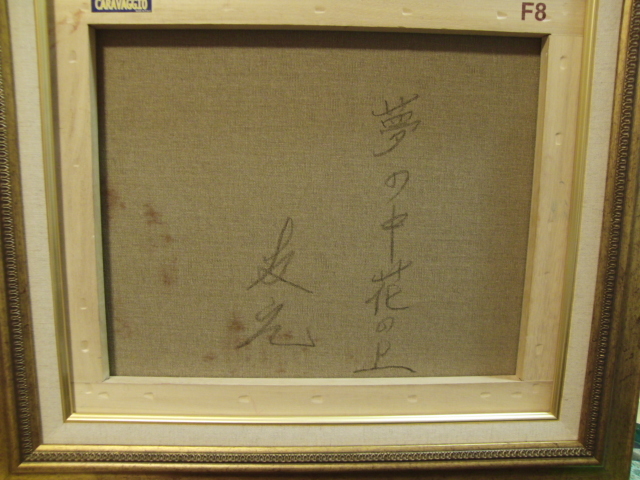 CARAVAGGIO
F8
夢の中花の上
友光